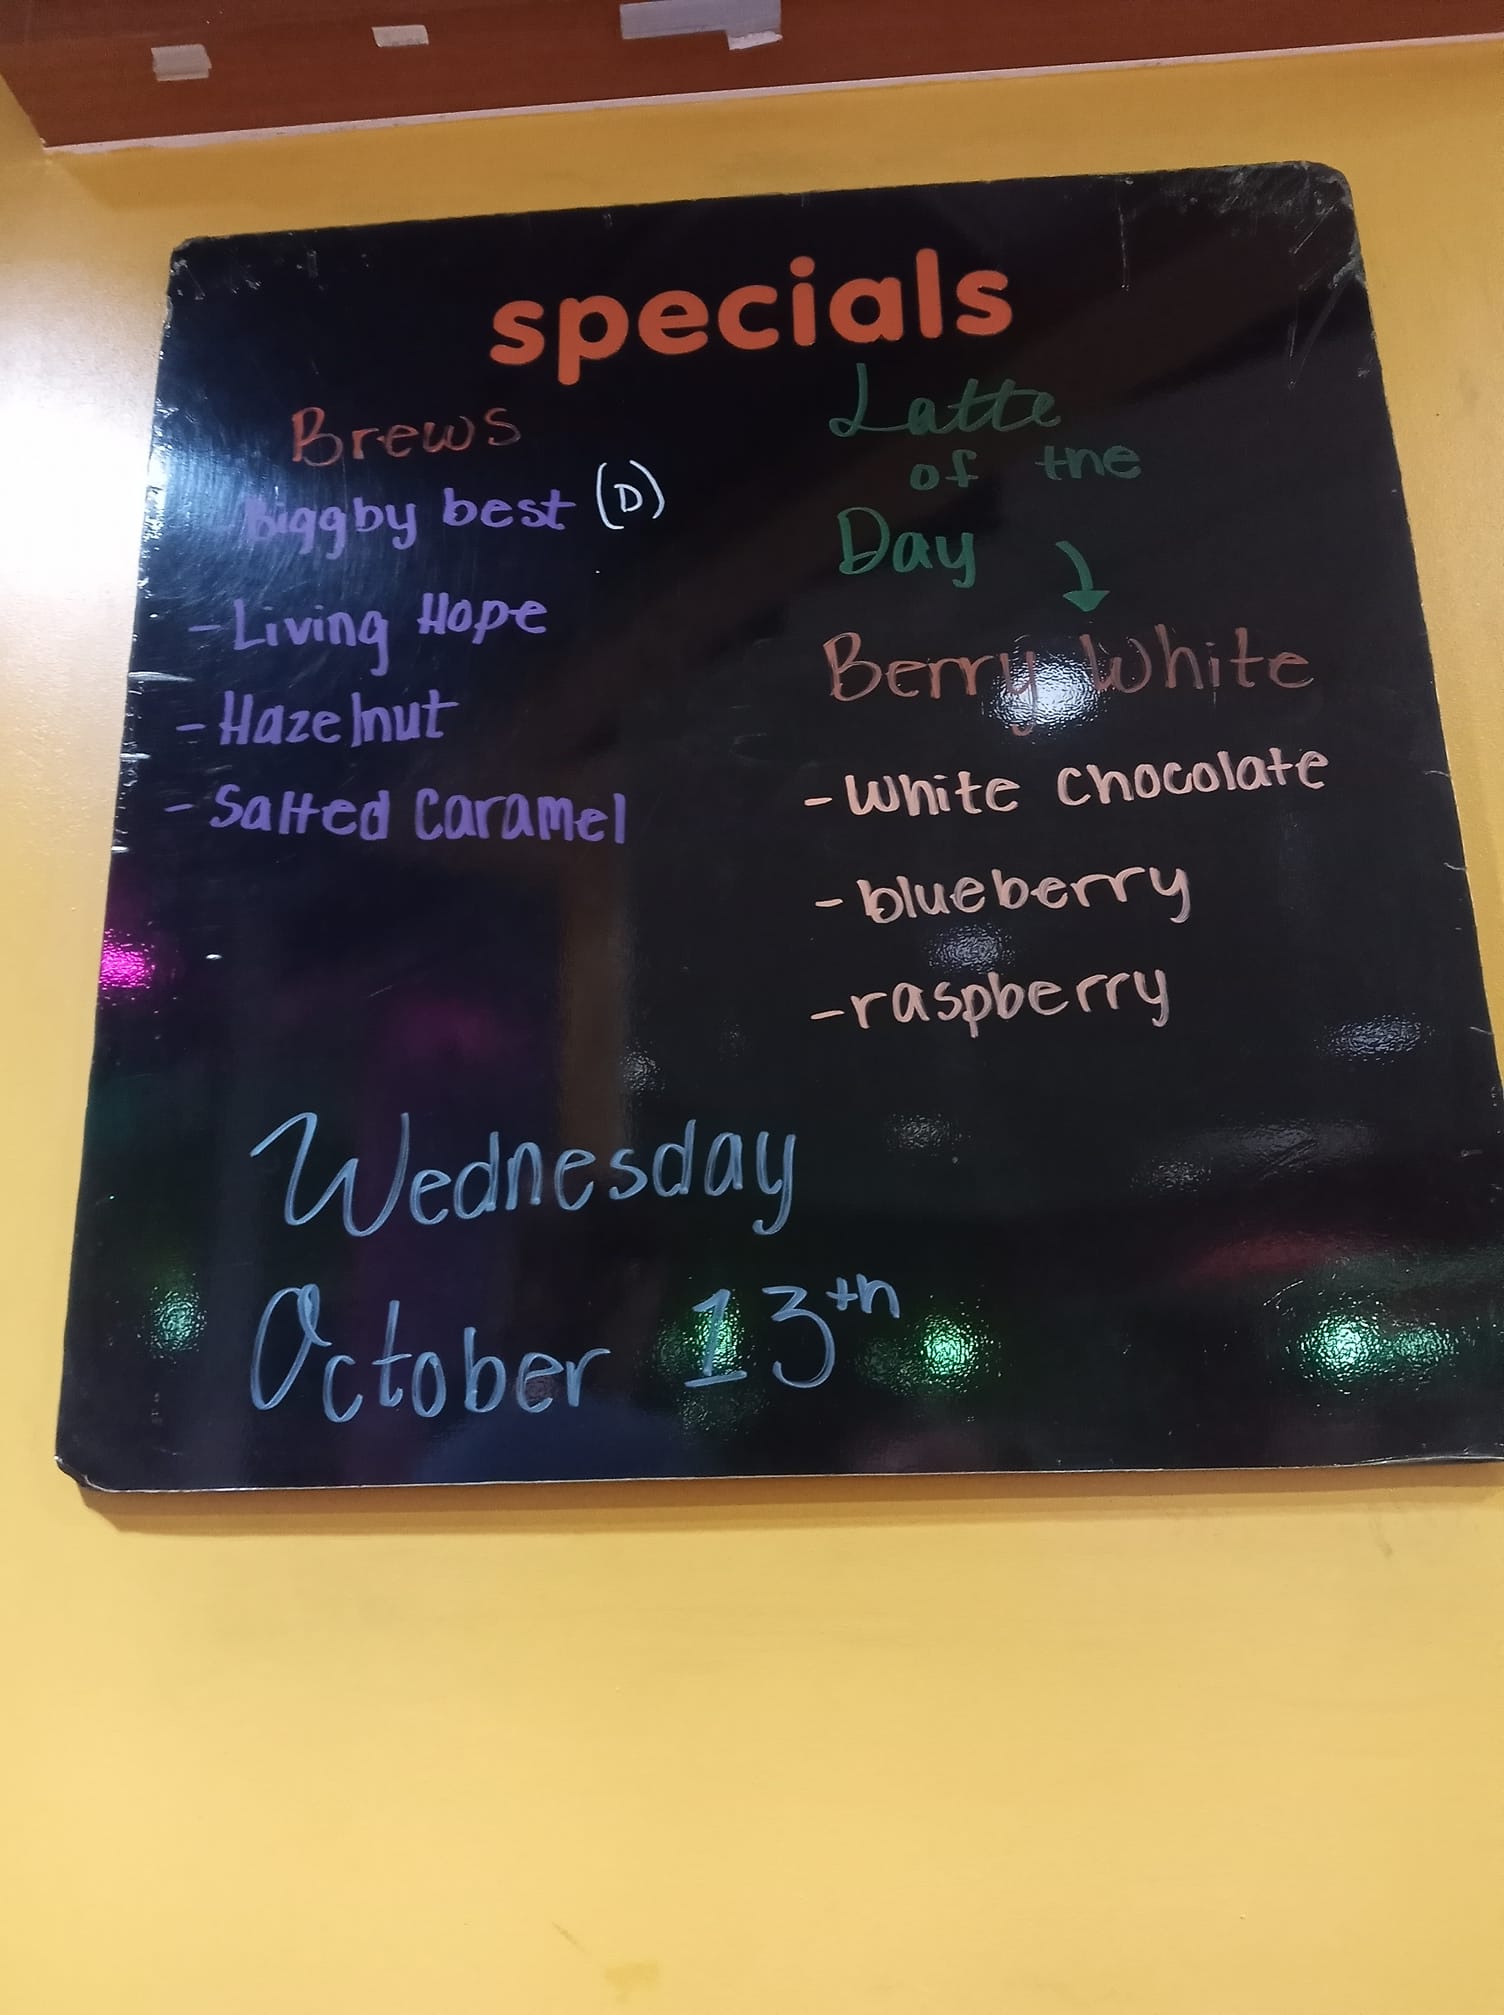 specials
Brews
- Biggby best (D)
- Living Hope
- Hazelnut
- Salted Caramel
Latte
of the
Day
Berry White
- White Chocolate
- blueberry
- raspberry
Wednesday
October 13th